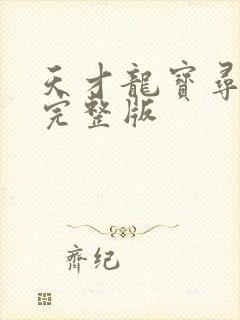 天才龍寶尋
完整版
齊纪